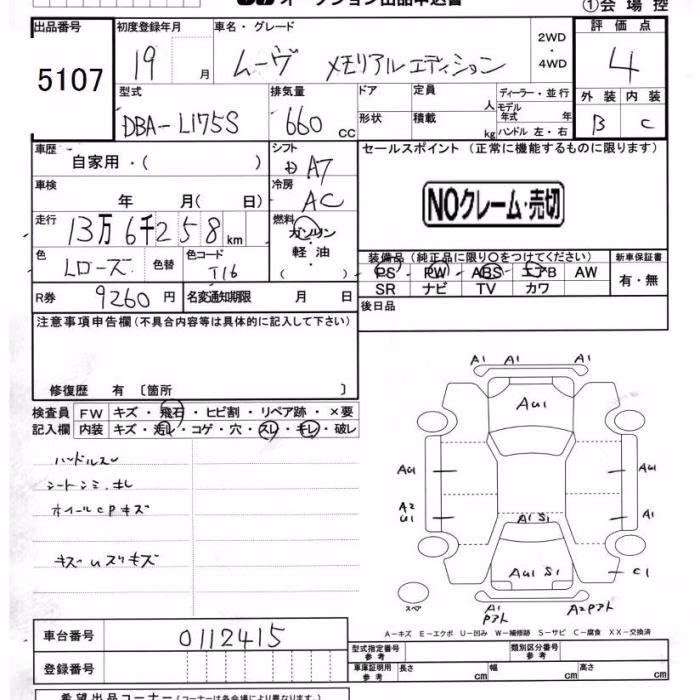 オークション出品申込書
①会場控
出品番号 初度登録年月 車名・グレード 2WD・4WD 評価点
5107 19 月 ムーヴ メモリアルエディション 4
型式 排気量 ドア 定員 人 ディーラー・並行 外装 内装
DBA-L175S 660 cc 形状 積載 kg モデル年式 年 ハンドル 左・右 B C
車歴 自家用・( ) シフト AT セールスポイント(正常に機能するものに限ります)
車検 年 月( 日) 冷房 AC
NOクレーム・売切
走行 13万6千258km 燃料 ガソリン・軽油 ( )
色 Lローズ 色替 色コード T16
装備品(純正品に限り○をつけてください) 新車保証書
PS PW ABS エアB AW 有・無
SR ナビ TV カワ
R券 9260円 名変通知期限 月 日 後日品
注意事項申告欄(不具合内容等は具体的に記入して下さい)
修復歴 有〔箇所 〕
検査員記入欄 FW キズ・飛石・ヒビ割・リペア跡・×要
内装 キズ・汚レ・コゲ・穴・スレ・キレ・破レ
ハンドルスレ
シートシミ・キレ
ホイールCPキズ
A1 A1 A1
AU1
AU1 AU1
A2
U1
A1
A1 S1
AU1 S1
C1
スペア
A1
A2
A-キズ E-エクボ U-凹み W-補修跡 S-サビ C-腐食 XX-交換済
車台番号 0112415
登録番号
型式指定番号 参考 類別区分番号 参考
車庫証明用 参考 長さ cm 幅 cm 高さ cm
希望出品コーナー(コーナーは各会場により異なります。)